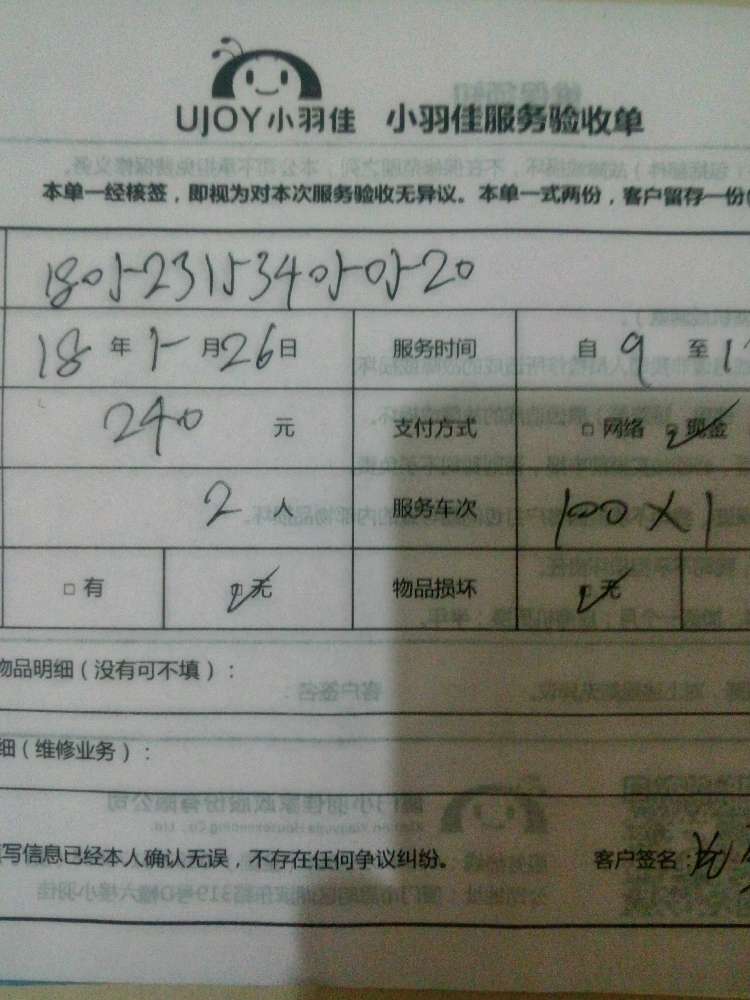 UJOY小羽佳 小羽佳服务验收单
本单一经核签，即视为对本次服务验收无异议。本单一式两份，客户留存一份
1805231534050520
18年5月26日 服务时间 自9至1
240元 支付方式 □网络 ☑现金
2人 服务车次 100X1
□有 ☑无 物品损坏 ☑无
物品明细（没有可不填）：
细（维修业务）：
写信息已经本人确认无误，不存在任何争议纠纷。 客户签名：